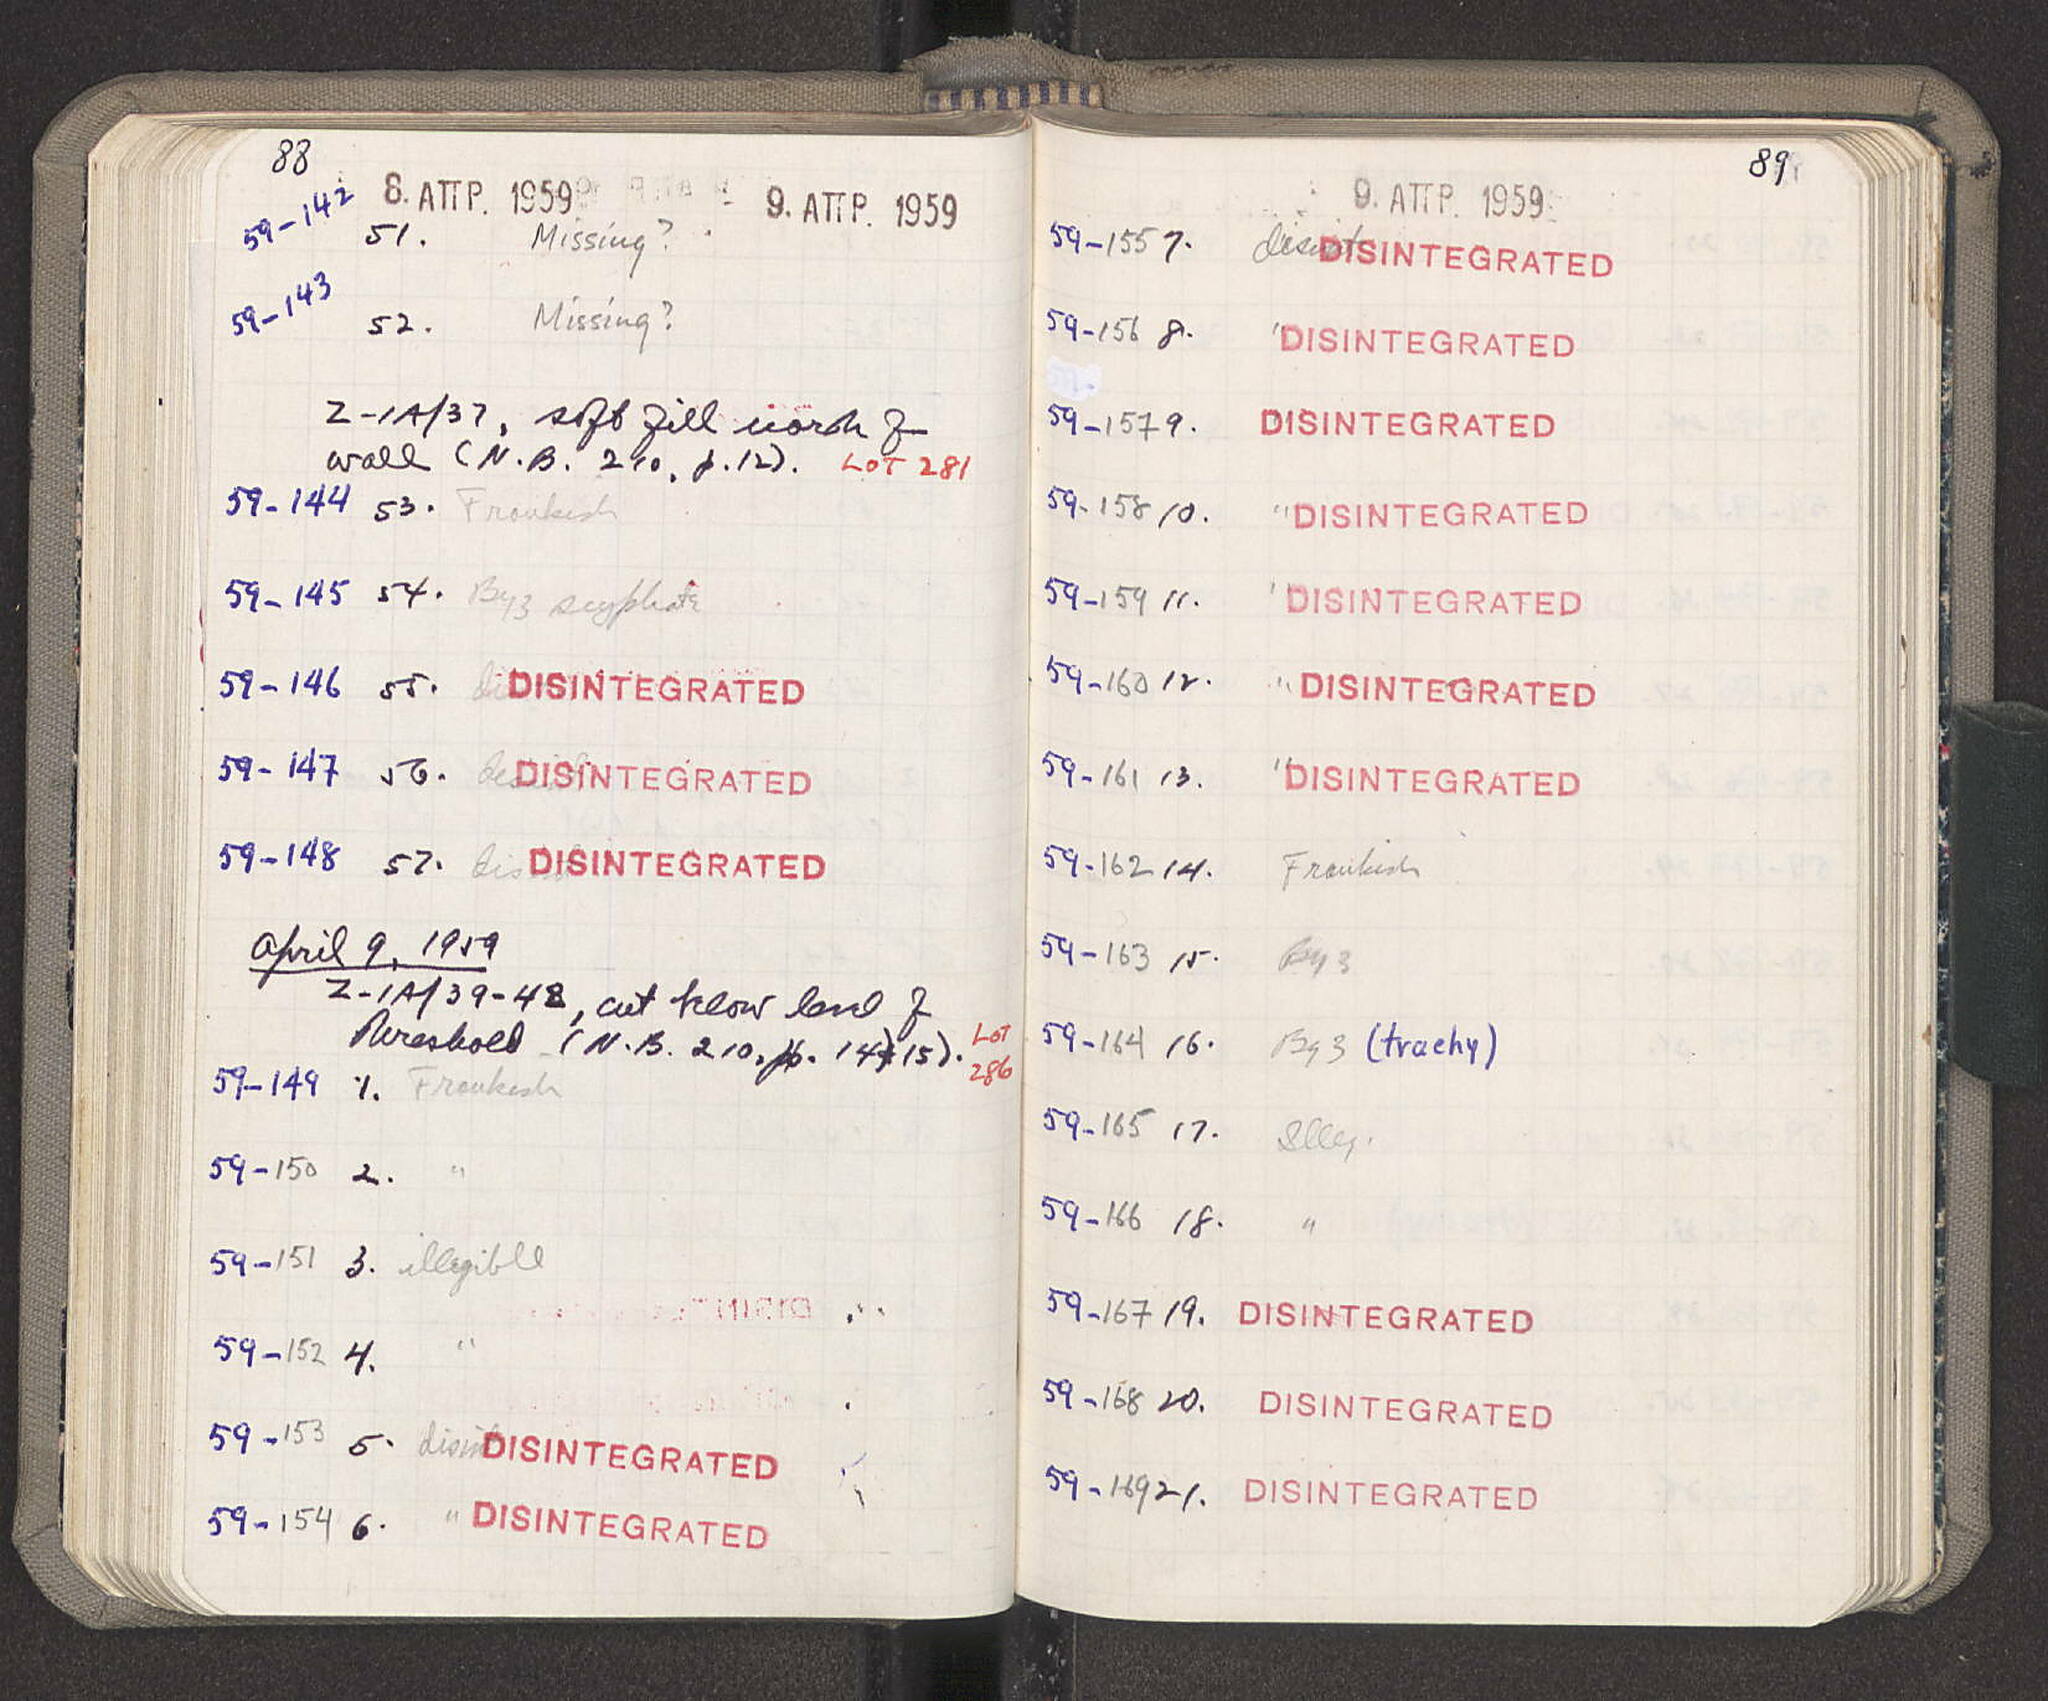 88
8. ΑΠΡ. 1959 9. ΑΠΡ. 1959
59-142 51. Missing?
59-143 52. Missing?
Z-1A/37, soft fill north of
wall (N.B. 210, p.12). LOT 281
59-144 53. Frankish
59-145 54. Byz scyphate
59-146 55. DISINTEGRATED
59-147 56. DISINTEGRATED
59-148 57. DISINTEGRATED
April 9, 1959
Z-1A/39-42, cut below level of
threshold (N.B. 210, pp. 14, 15). LOT
286
59-149 1. Frankish
59-150 2. "
59-151 3. illegible
59-152 4. "
59-153 5. disint DISINTEGRATED
59-154 6. " DISINTEGRATED
89
9. ΑΠΡ. 1959
59-155 7. disint DISINTEGRATED
59-156 8. " DISINTEGRATED
59-157 9. DISINTEGRATED
59-158 10. " DISINTEGRATED
59-159 11. " DISINTEGRATED
59-160 12. " DISINTEGRATED
59-161 13. " DISINTEGRATED
59-162 14. Frankish
59-163 15. Byz
59-164 16. Byz (trachy)
59-165 17. Illeg.
59-166 18. "
59-167 19. DISINTEGRATED
59-168 20. DISINTEGRATED
59-169 21. DISINTEGRATED